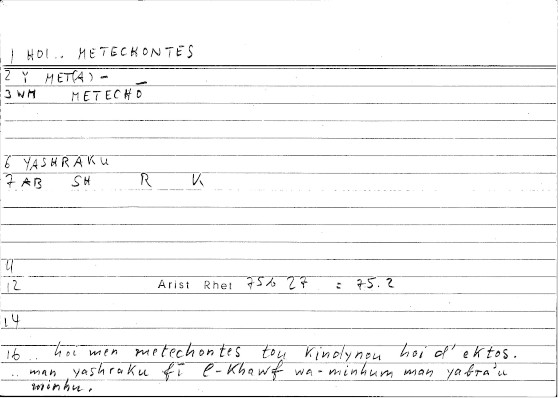 1 HOI.. METECHONTES
2 Y MET(A) -
3 WM METECHŌ
6 YASHRAKU
7 AB SH R K
4
12 Arist Rhet 75b 27 = 75.2
14
16 .. hoi men metechontes tou kindynou hoi d' ektos.
.. man yashraku fī l-khawf wa-minhum man yabra'u
minhu.